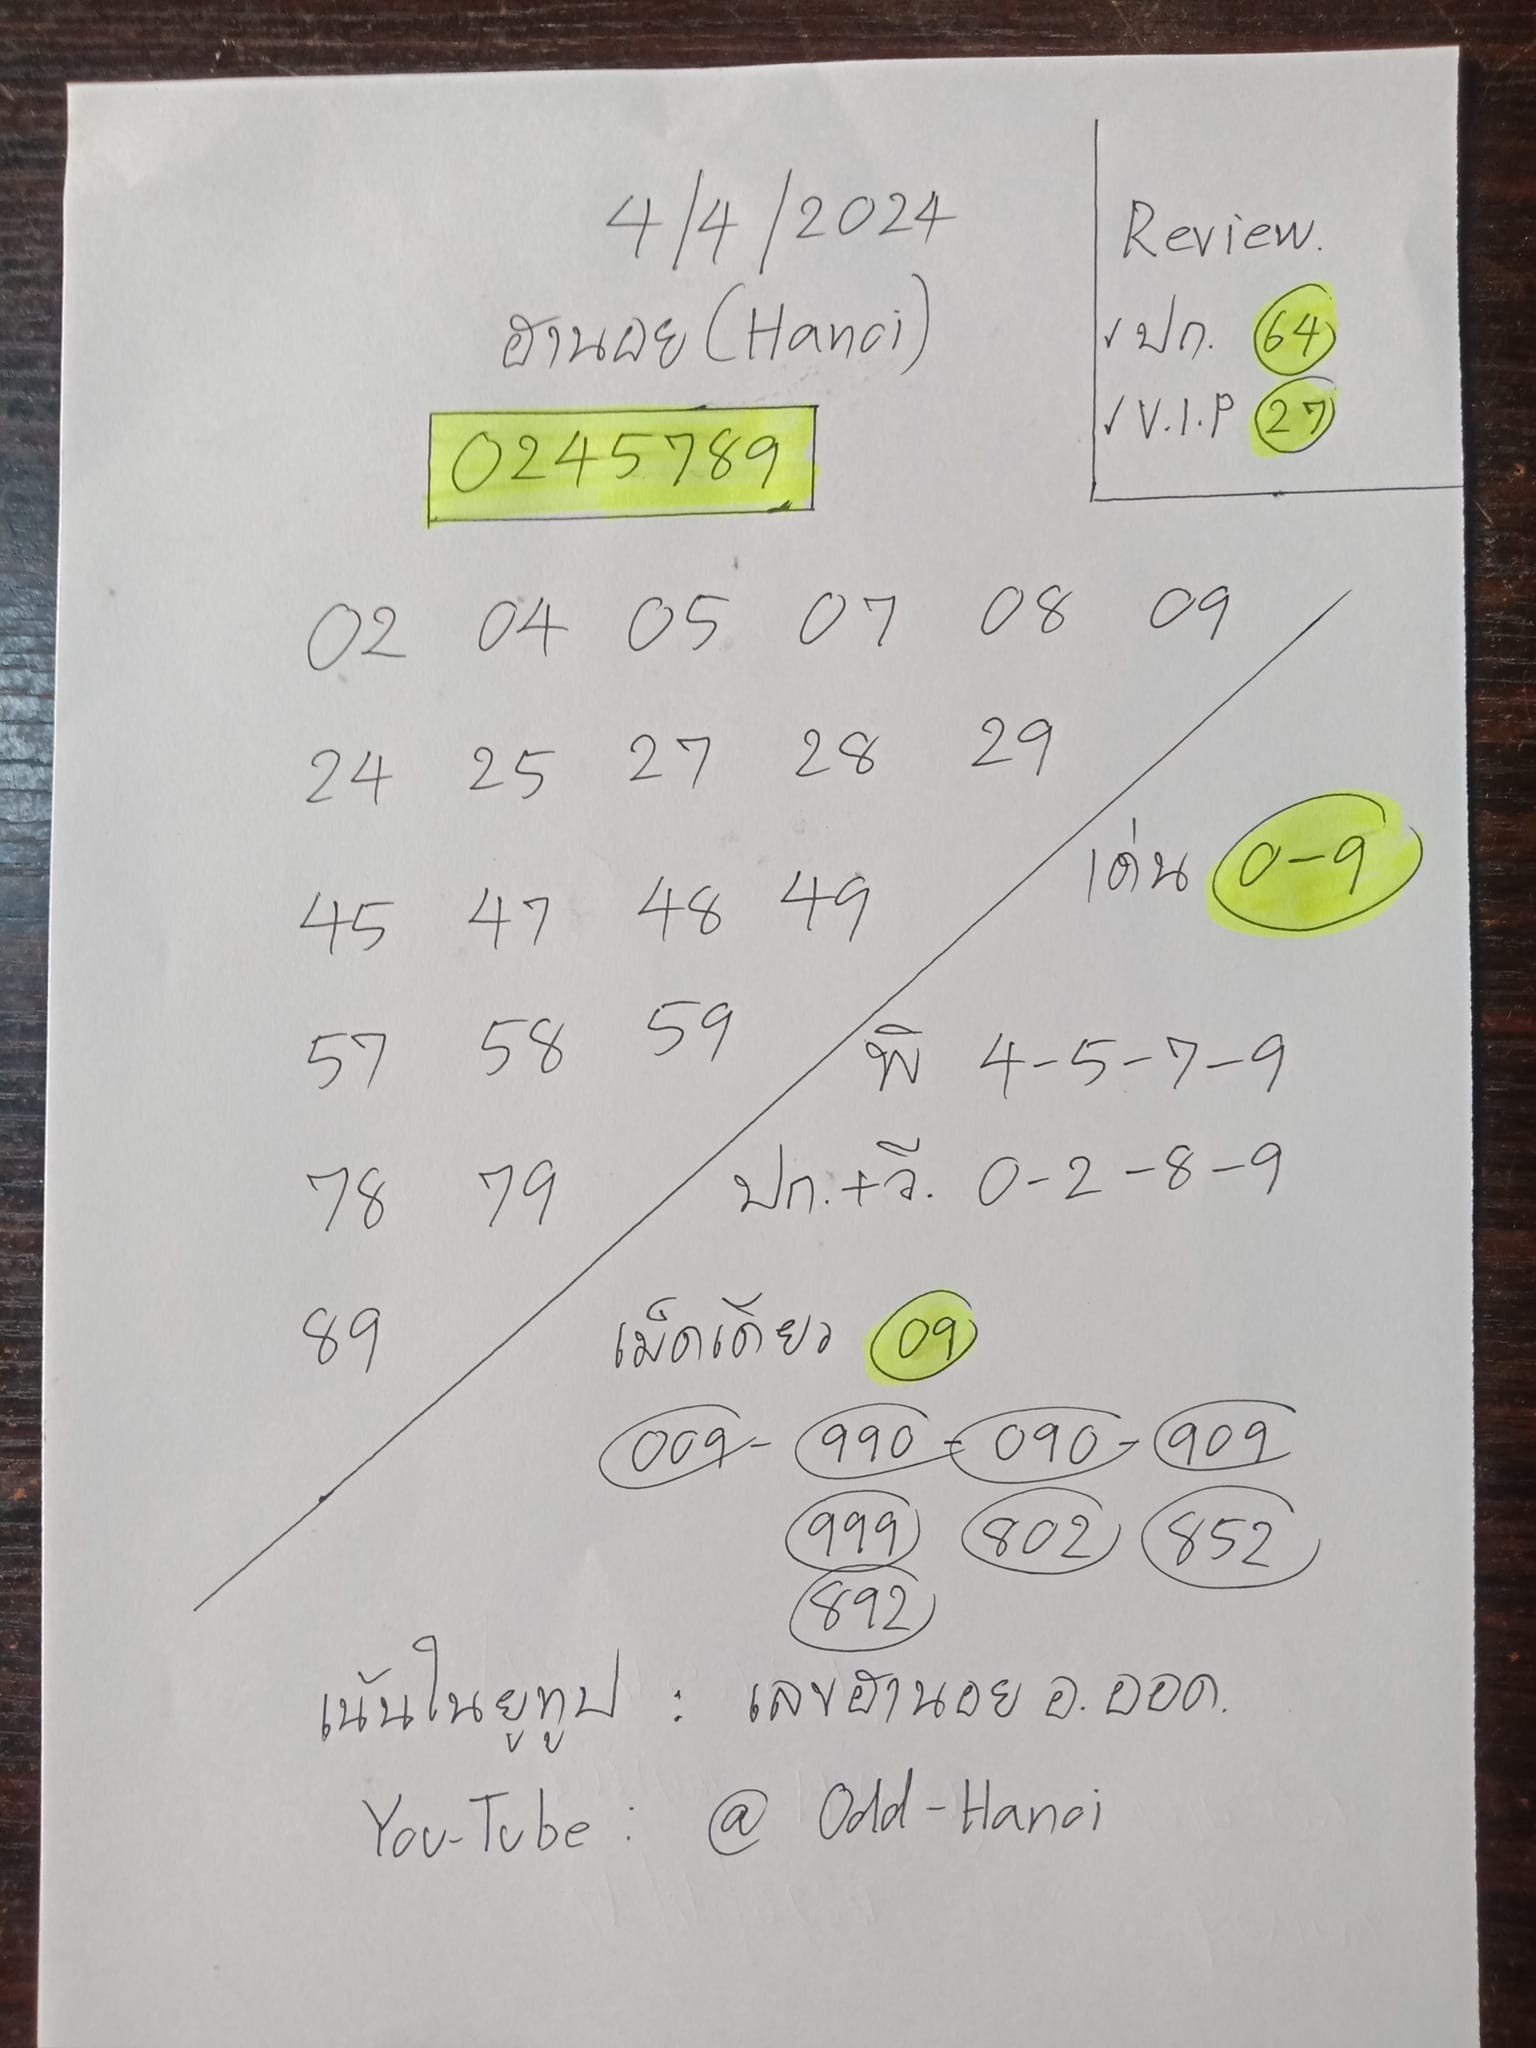 4/4/2024
ฮานอย (Hanoi)
0245789
Review.
✓ ปก. 64
✓ V.I.P 27
02 04 05 07 08 09
24 25 27 28 29
45 47 48 49
57 58 59
78 79
89
เด่น 0-9
พิ 4-5-7-9
ปก.+วี. 0-2-8-9
เม็ดเดียว 09
009 - 990 - 090 - 909
999 802 852
892
เน้นในยูทูป : เลขฮานอย อ.ออด.
You-Tube : @ Odd-Hanoi